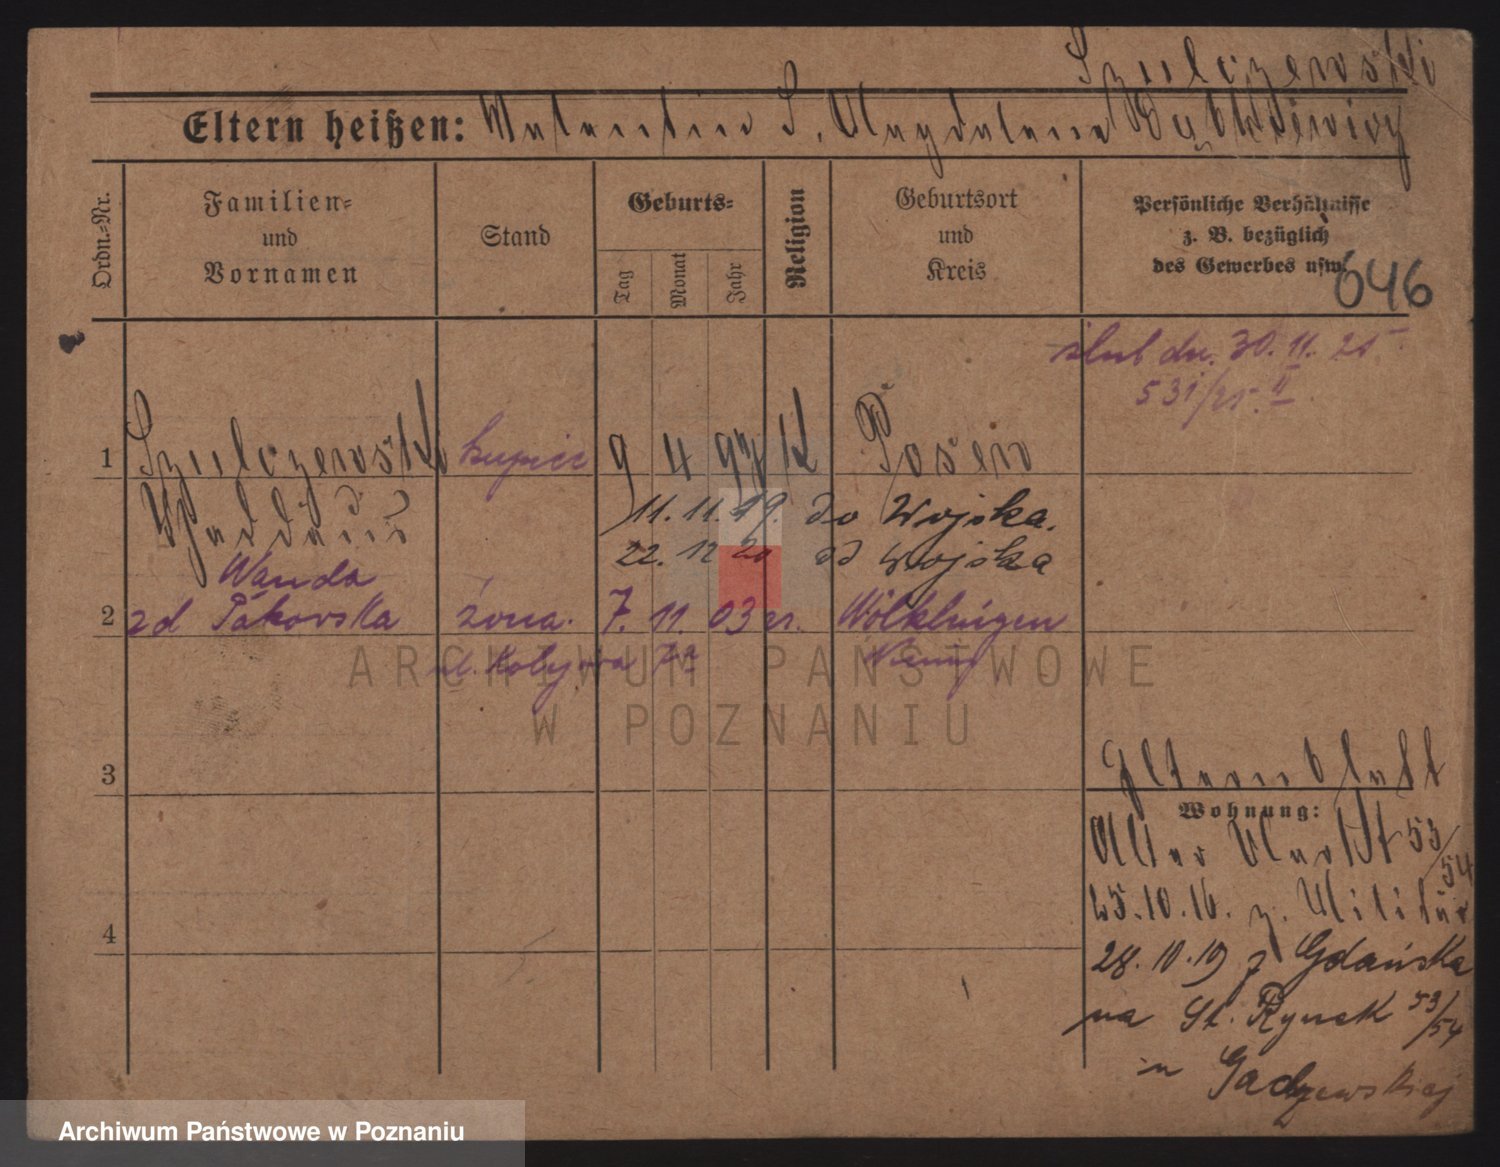 Szulczewski
Eltern heißen: Valentin S. Magdalena
Ordn.-Nr.
Familien-
und
Vornamen
Stand
Geburts-
Tag
Monat
Jahr
Religion
Geburtsort
und
Kreis
Persönliche Verhältnisse
z. B. bezüglich
des Gewerbes usw.
646
ślub dn. 30. 11. 25
531/25. II
1 Szulczewski kupiec 9 4 97 K Posen
Thaddäus 11. 11. 19. do Wojska.
22. 12 20 od wojska
Wanda
2 zd Pakowska żona. 7. 11. 03 Wölklingen
ul. 7a Niemcy
3
4
Elternblatt
Wohnung:
Alter Markt 53/54
25.10.16. z. Militär
28.10.19 z Gdańska
na St. Rynek 53/54
ARCHIWUM PAŃSTWOWE
W POZNANIU
Archiwum Państwowe w Poznaniu